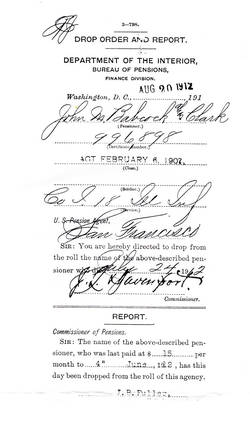 3—798.
DROP ORDER AND REPORT.
DEPARTMENT OF THE INTERIOR,
BUREAU OF PENSIONS,
FINANCE DIVISION.
AUG 20 1912
Washington, D. C., 191
John M. Babcock Clark
(Pensioner.)
996898
(Certificate number.)
ACT FEBRUARY 6, 1907.
(Class.)
(Soldier.)
Co I. 18 Ill Inf
U. S. Pension Agent,
San Francisco
SIR: You are hereby directed to drop from
the roll the name of the above-described pen-
sioner who died July 24, 1912
J. L. Davenport
Commissioner.
REPORT.
Commissioner of Pensions.
SIR: The name of the above-described pen-
sioner, who was last paid at $ 15 per
month to 4" June 1912, has this
day been dropped from the roll of this agency.